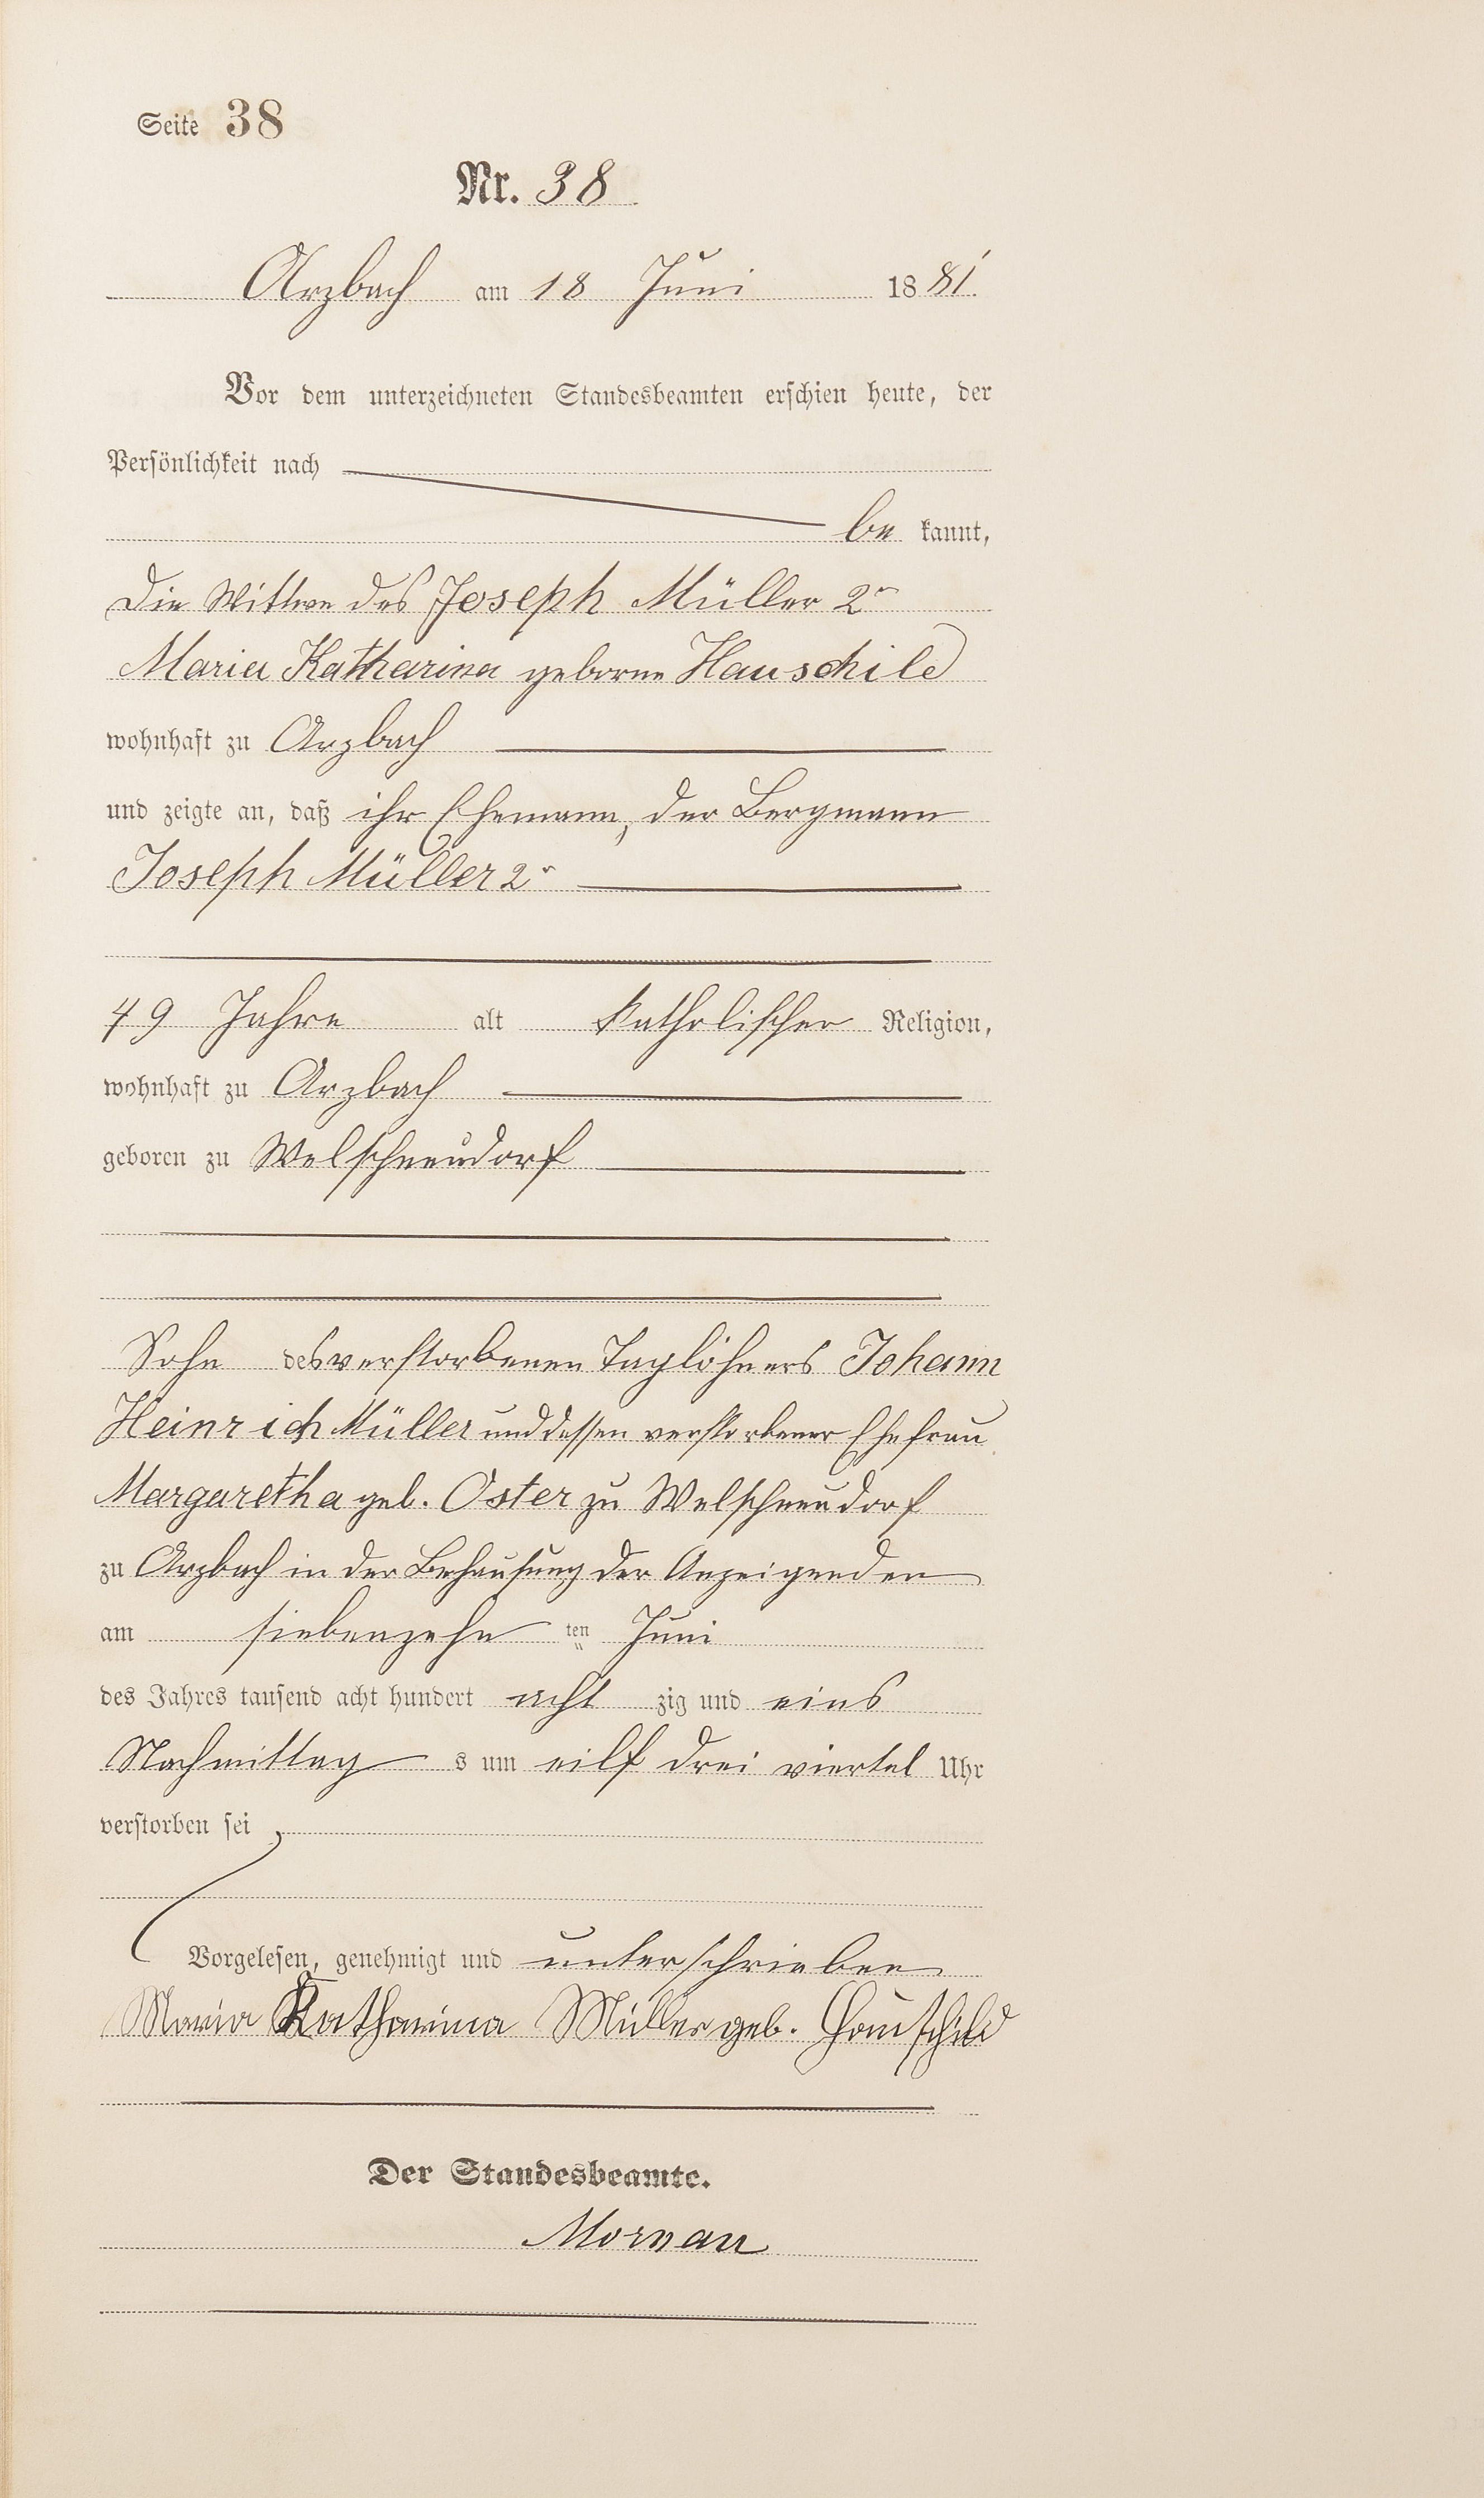 Seite 38
Nr. 38
Arzbach am 18 Juni 1881.
Vor dem unterzeichneten Standesbeamten erschien heute, der
Persönlichkeit nach
be kannt,
die Wittwe des Joseph Müller 2r
Maria Katharina geborne Hauschild
wohnhaft zu Arzbach
und zeigte an, daß ihr Ehemann, der Bergmann
Joseph Müller 2r
49 Jahre alt katholischer Religion,
wohnhaft zu Arzbach
geboren zu Welschneudorf
Sohn des verstorbenen Taglöhners Johann
Heinrich Müller und dessen verstorbener Ehefrau
Margaretha geb. Oster zu Welschneudorf
zu Arzbach in der Behausung der Anzeigenden
am siebenzehn ten Juni
des Jahres tausend acht hundert acht zig und eins
Nachmittag s um eilf drei viertel Uhr
verstorben sei
Vorgelesen, genehmigt und unterschrieben
Maria Katharina Müller geb. Hauschild
Der Standesbeamte.